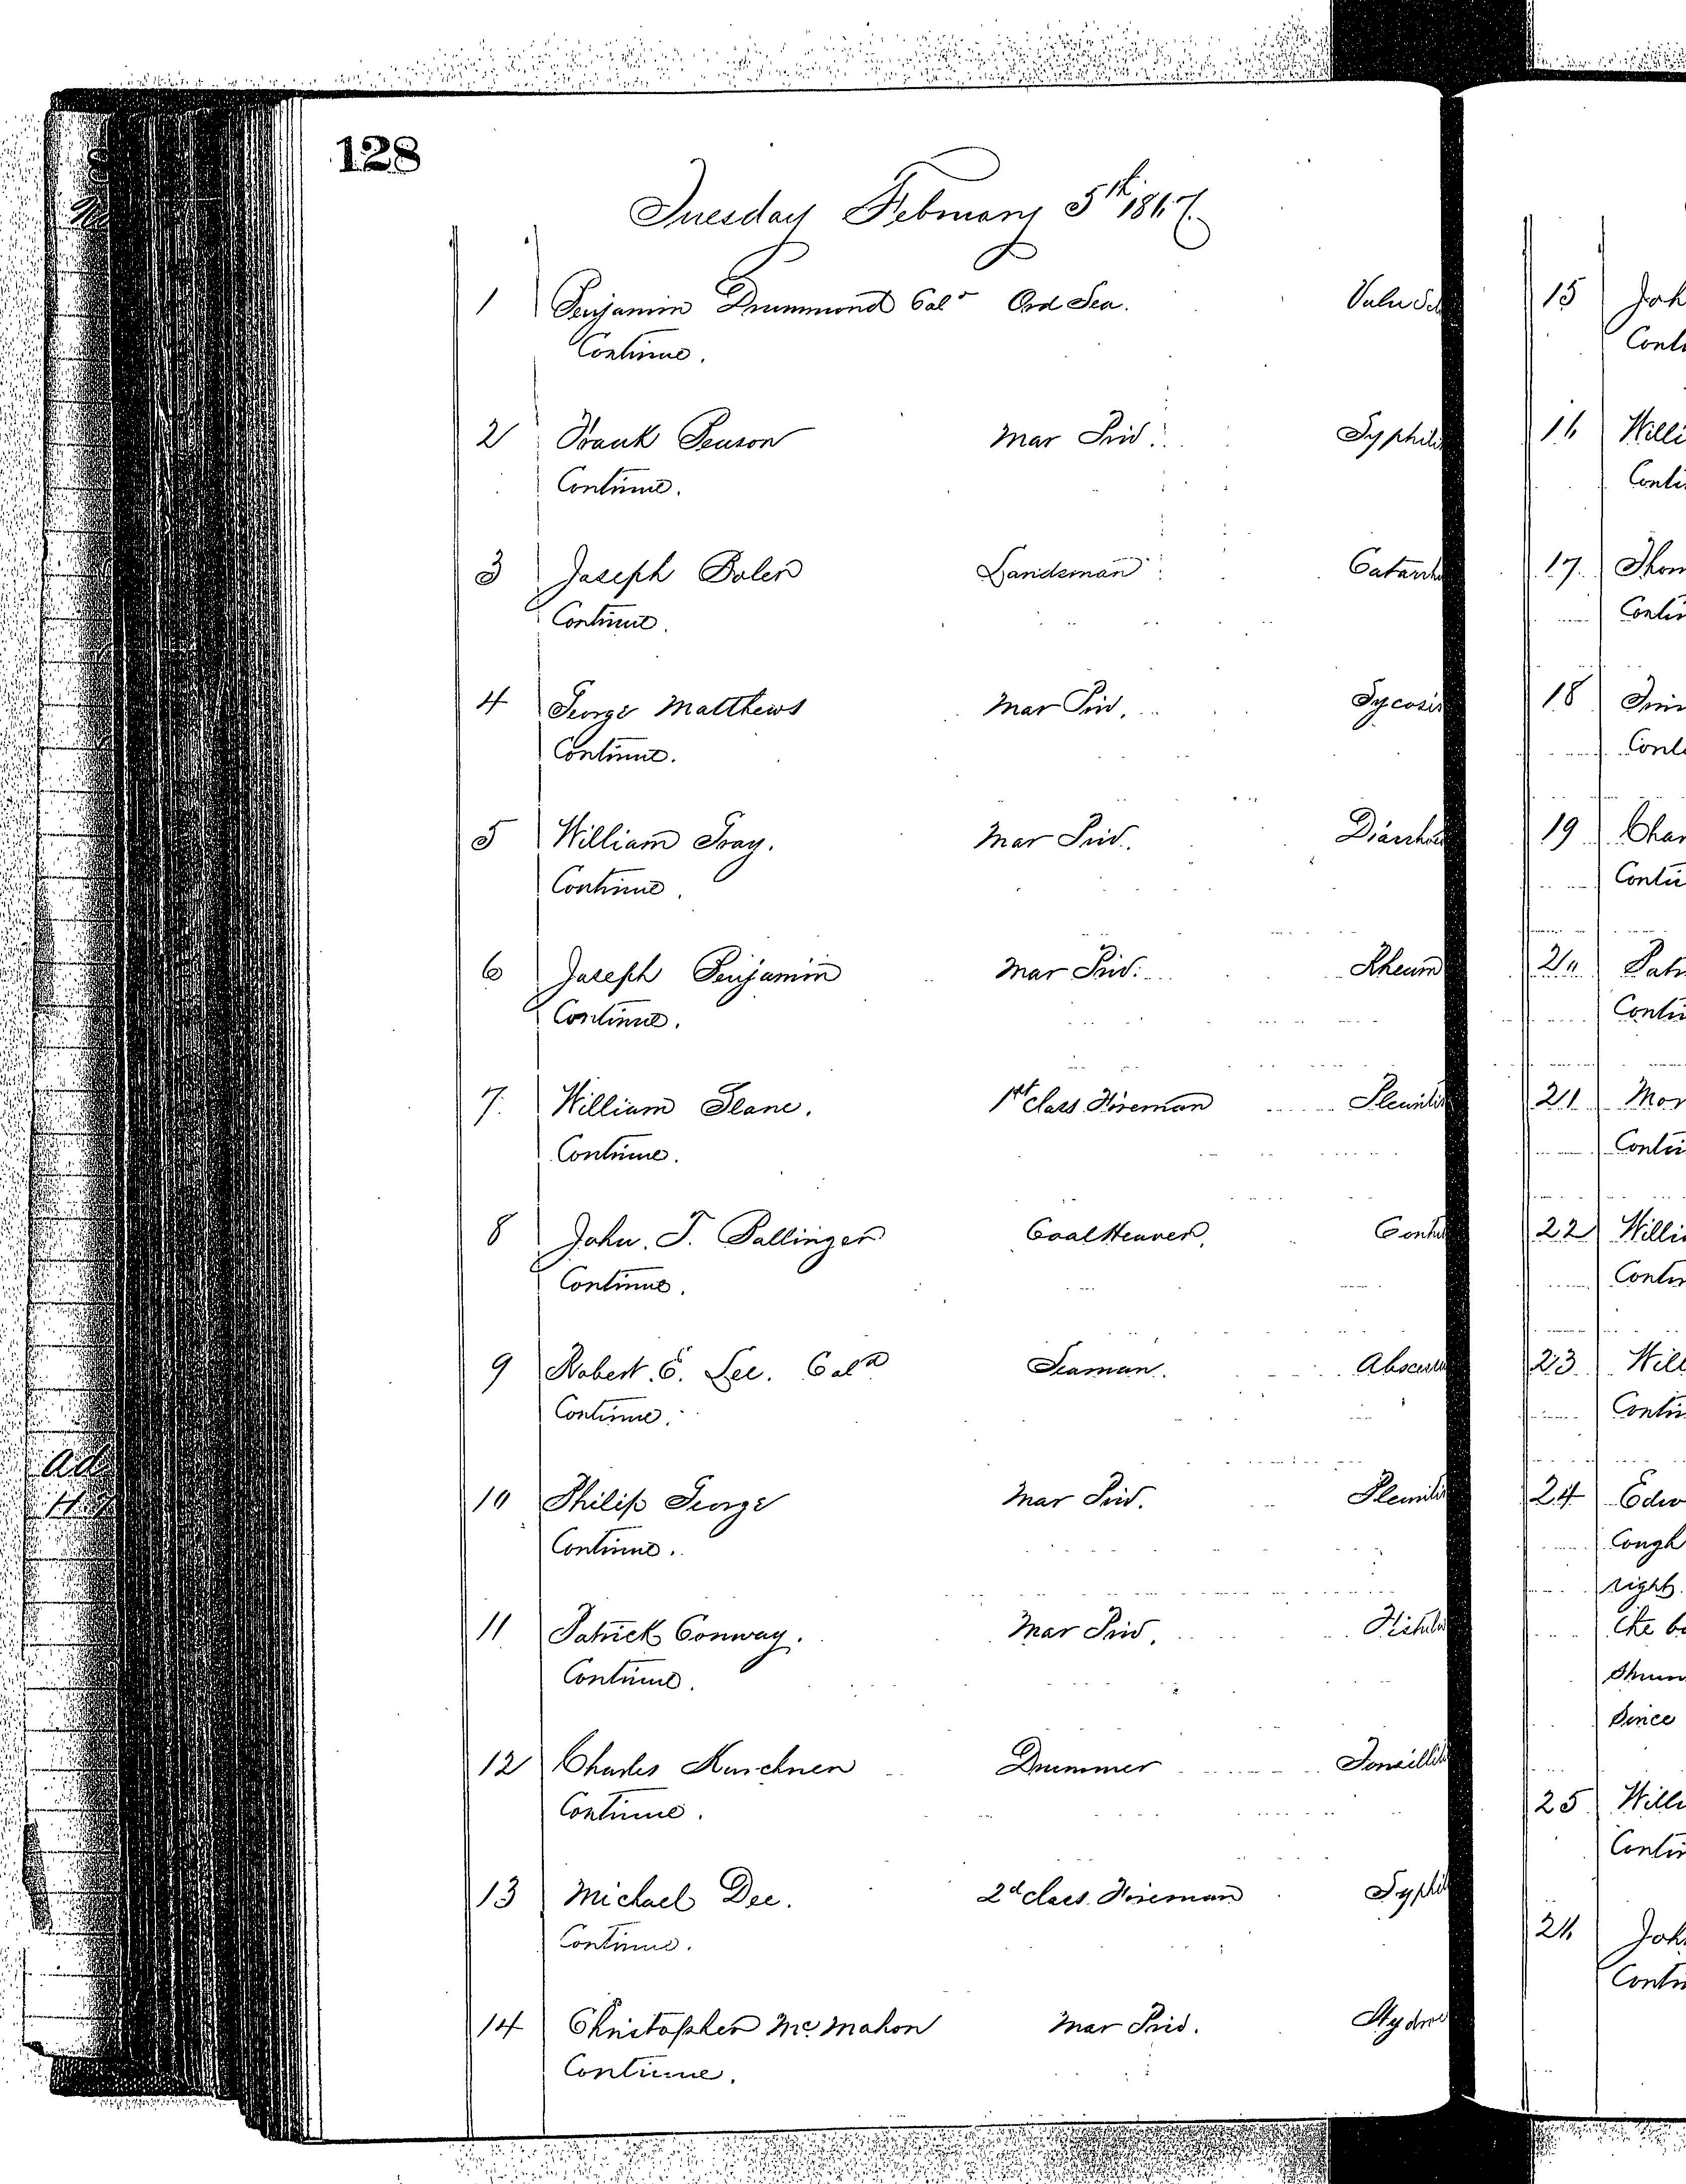 128
Tuesday February 5th 1867.
1 Benjamin Drummond Cold Ord Sea. Vuln Scl
Continue.
2 Frank Benson Mar Priv. Syphilis
Continue.
3 Joseph Bolen Landsman Catarrh
Continue.
4 George Matthews Mar Priv. Sycosis
Continue.
5 William Gray. Mar Priv. Diarrhoea
Continue.
6 Joseph Benjamin Mar Priv. Rheum
Continue.
7. William Slane. 1st class Fireman Pleuritis
Continue.
8 John. T. Ballinger Coal Heaver. Contu
Continue.
9 Robert. E. Lee. Cold Seaman. Abscess
Continue.
10 Philip George Mar Priv. Pleuritis
Continue.
11 Patrick Conway. Mar Priv. Fistula
Continue.
12 Charles Drummer Tonsillitis
Continue.
13 Michael Dee. 2d class Fireman Syphil
Continue.
14 Christopher McMahon Mar Priv. Hydroc
Continue.
15 Joh
Conti
16 Willi
Conti
17. Thom
Contin
18
Conti
19 Char
Contin
20 Patr
Contin
21 Mor
Contin
22 Willia
Contin
23 Will
Contin
24 Edw
Cough
right
the b
Since
25 Willi
Contin
26 Joh
Contin
ad